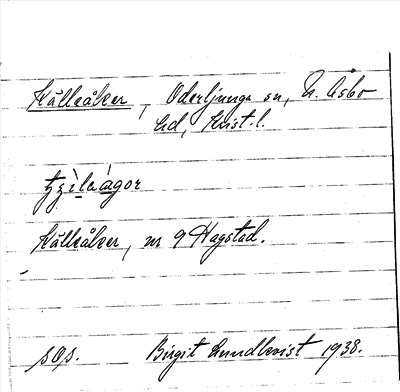 Källeåker, Oderljunga sn, N. Åsbo
hd, Krist. l.
Källeåker, nr 9 Hagstad.
sOp. Birgit Lundkvist 1938.